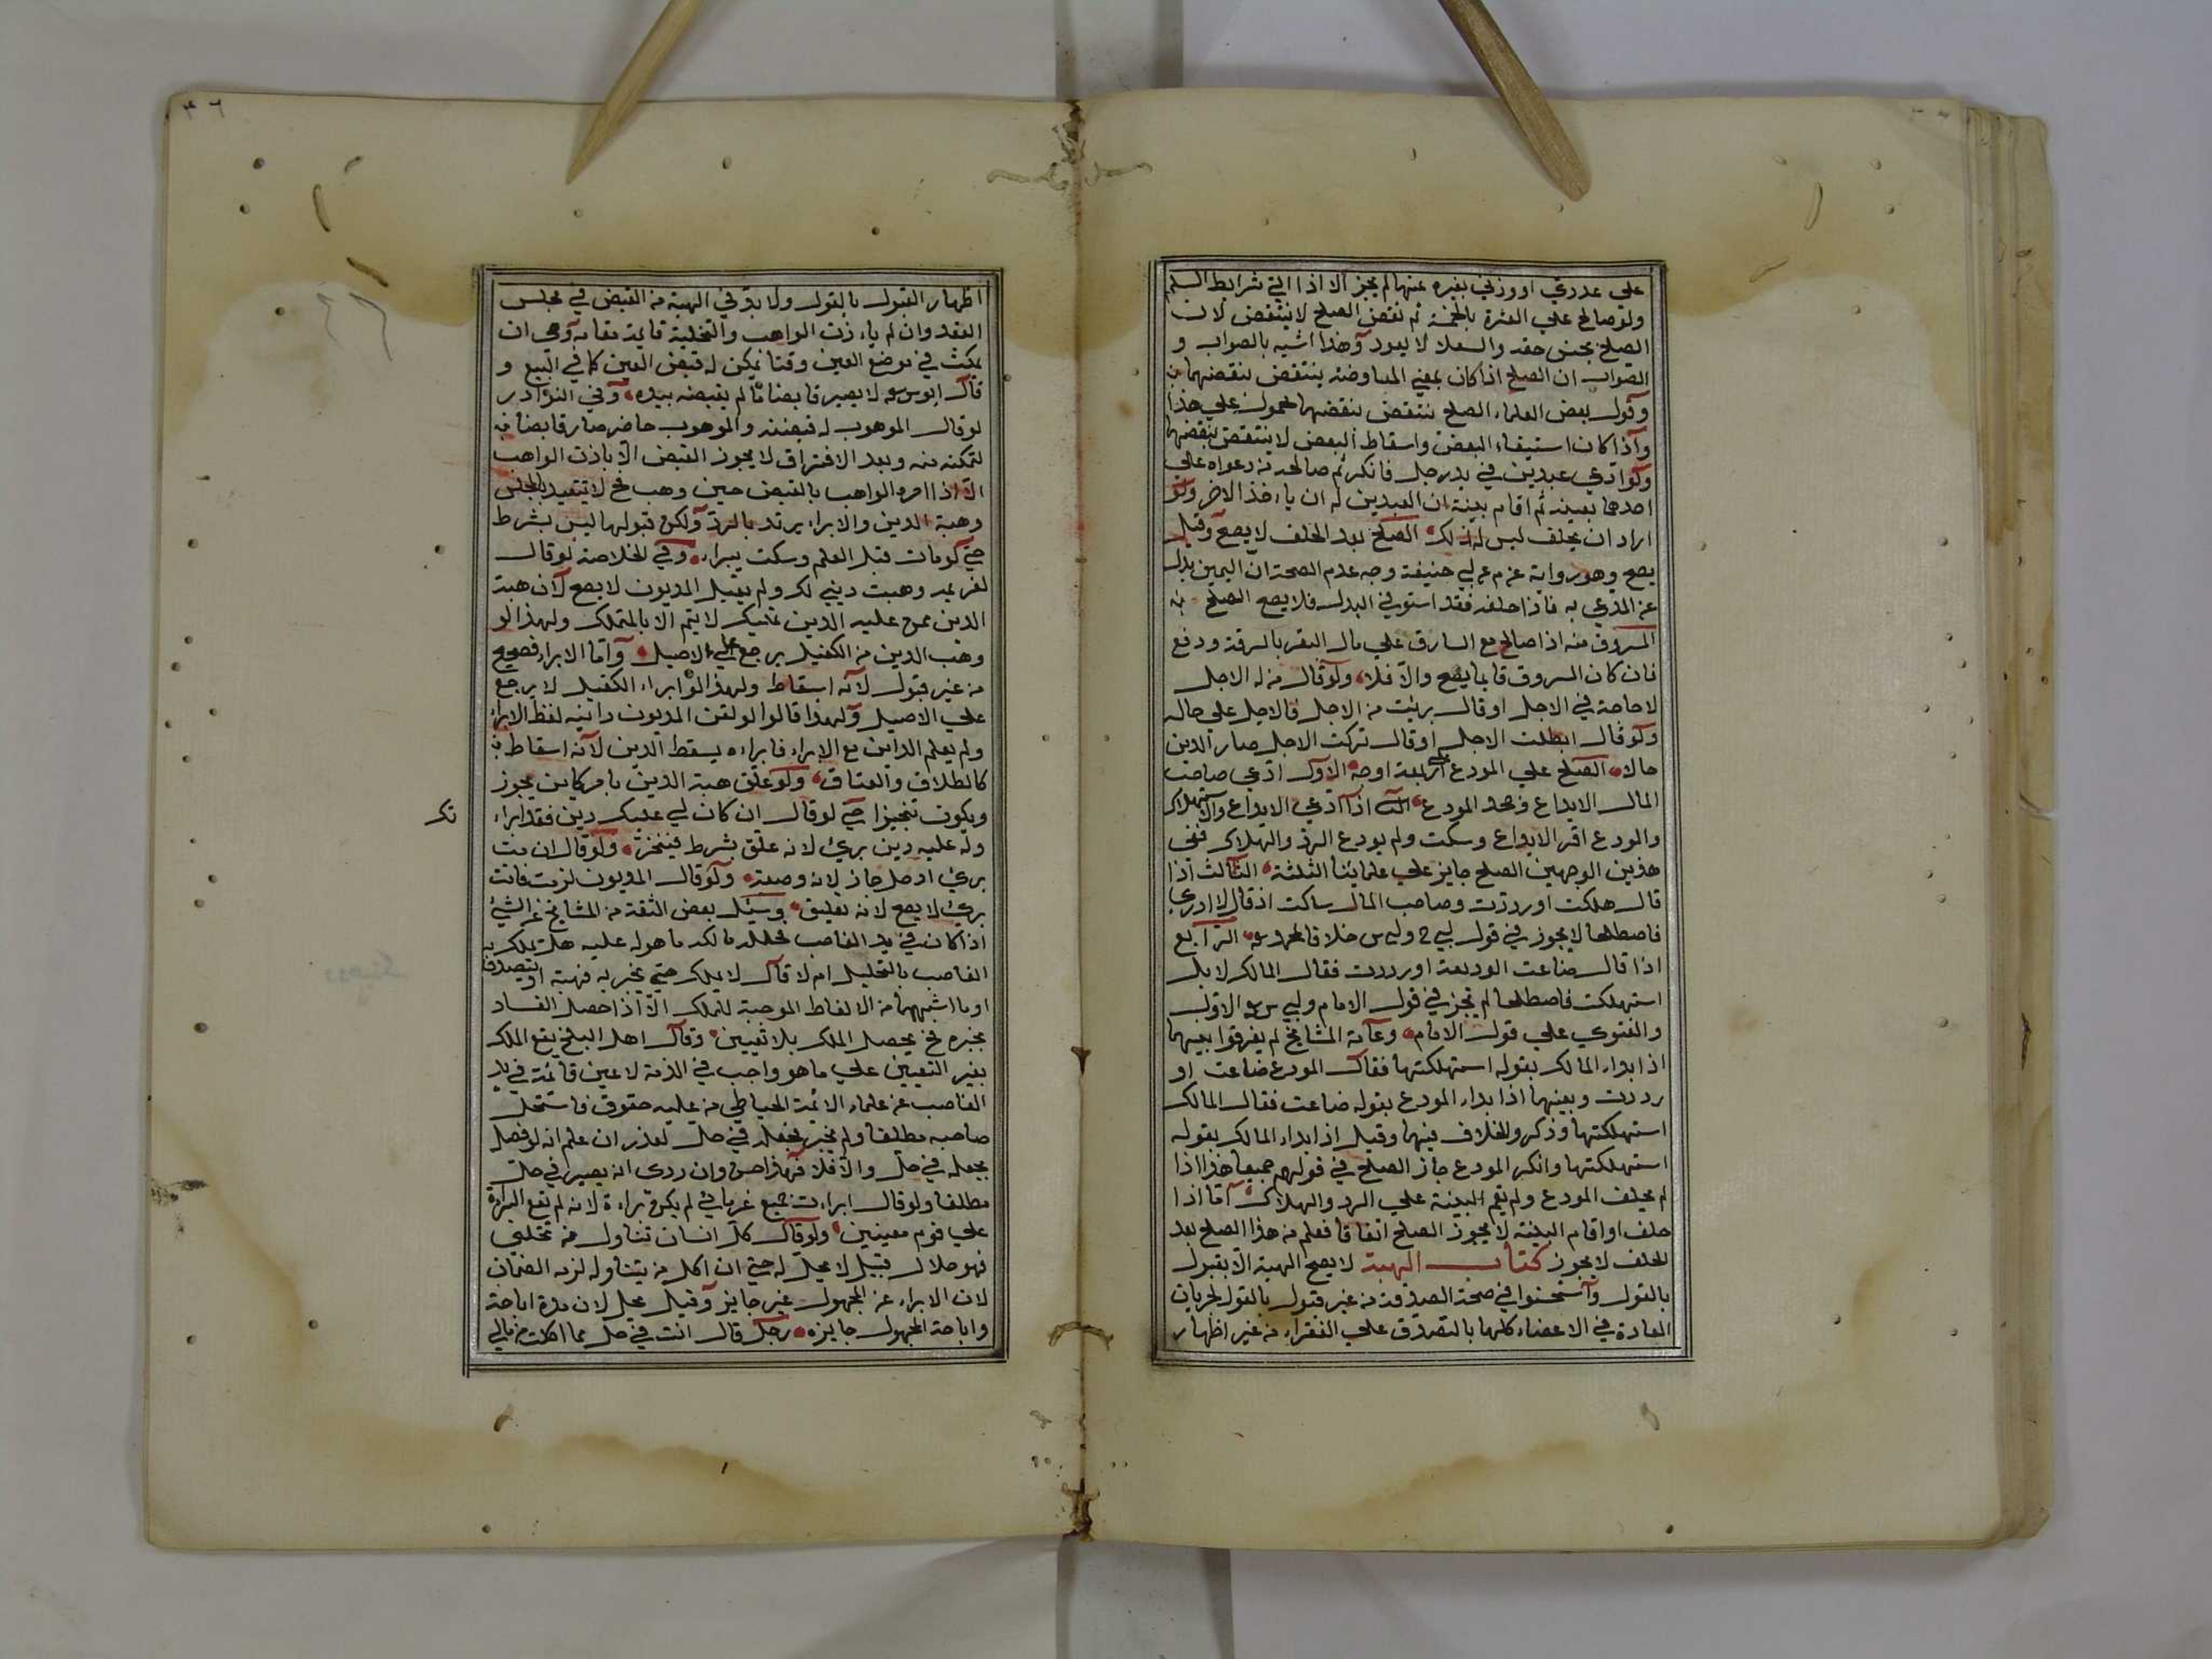 علي عددي او وزني بغيره عينها لم يجز الا اذا اتي شرايط السلم
ولو صالح علي العشرة بالخمسة ثم نقض الصلح لا ينتقض لان
الصلح بجنس حقه والساقط لا يعود وهذا اشبه بالصواب و
الصواب ان الصلح اذا كان بمعني المعاوضة ينتقض بنقضهما
وقول بعض العلماء الصلح ينتقض بنقضهما محمول علي هذا
واذا كان استيفاء البعض واسقاط البعض لا ينتقض بنقضهما
ولو ادعي عبدين في يد رجل فانكر ثم صالحه من دعواه علي
احدهما بعينه ثم اقام بينة ان العبدين له ان ياءخذ الاخر ولو
اراد ان يحلف ليس له ذلك الصلح بعد الحلف لا يصح وقيل
يصح وهو رواية عن م عن ابي حنيفة وجه عدم الصحة ان اليمين بدل
عن المدعي به فاذا حلفه فقد استوفي البدل فلا يصح الصلح
المسروق منه اذا صالح مع السارق علي مال اليقر بالسرقة ودفع
فان كان المسروق قايما يصح والا فلا ولو قال من له الاجل
لا حاجة في الاجل او قال بريئت من الاجل فالاجل علي حاله
ولو قال ابطلت الاجل او قال تركت الاجل صار الدين
حالا الصلح علي المودع علي اربعة اوجه الاول ادعي صاحب
المال الايداع وجحد المودع الثاني اذا ادعي الايداع والاستهلاك
والمودع اقر الايداع وسكت ولم يودع الرد والهلاك ففي
هذين الوجهين الصلح جايز علي علمايئنا الثلثة الثالث اذا
قال هلكت او رددت وصاحب المال ساكت اذ قال لا ادري
فاصطلحا لا يجوز في قول ابي ح وابي س خلافا لمحمد الرابع
اذا قال ضاعت الوديعة او رددت فقال المالك لا بل
استهلكت فاصطلحا لم يجز في قول الامام وابي س الاول
والفتوي علي قول الامام وعامة المشايخ لم يفرقوا بينهما
اذا بداء المالك بقوله استهلكتها فقال المودع ضاعت او
رددت وبينهما اذا بداء المودع بقوله ضاعت فقال المالك
استهلكتها وذكر والخلاف فيهما وقيل اذا بداء المالك بقوله
استهلكتها وانكر المودع جاز الصلح في قولهم جميعا هذا اذا
لم يحلف المودع ولم يقم البينة علي الرد والهلاك اما اذا
حلف او اقام البينة لا يجوز الصلح اتفاقا فعلم من هذا الصلح بعد
الحلف لا يجوز كتاب الهبة لا يصح الهبة الا بقبول
بالقول واستحسنوا في صحة الصدقة من غير قبول بالقول لجريان
العادة في الاعصاء كلها بالتصدق علي الفقراء من غير اظهار
٣٦
اظهار القبول بالقول ولا بد في الهبة من القبض في مجلس
العقد وان لم ياءذن الواهب والتخلية قايمة مقامه وهي ان
يمكث في موضع العين وقتا يمكن له قبض العين كما في البيع و
قال ابو س لا يصير قابضا ما لم يقبضه بيده وفي النوادر
لو قال الموهوب له قبضته والموهوب حاضر صار قابضا
لتمكنه منه وبعد الافتراق لا يجوز القبض الا باذن الواهب
الا اذا امره الواهب بالقبض حين وهب فح لا يتقيد بالمجلس
وهبة الدين والابراء يرتد بالرد ولكن قبولها ليس بشرط
حتي لو مات قبل العلم وسكت يبراء وفي الخلاصة لو قال
لغريمه وهبت ديني لك ولم يقبل المديون لا يصح لان هبة
الدين ممن عليه الدين تمليك لا يتم الا بالتملك ولهذا لو
وهب الدين من الكفيل يرجع علي الاصيل واما الابراء فصحيح
من غير قبول لانه اسقاط ولهذا لو ابراء الكفيل لا يرجع
علي الاصيل ولهذا قالوا لو لقن المديون داينه لفظ الابراء
ولم يعلم الداين مع الابراء فابراءه يسقط الدين لانه اسقاط
كالطلاق والعتاق ولو علق هبة الدين بامر كاين يجوز
ويكون تنجيزا حتي لو قال ان كان لي عليك دين فقد ابراء
تك
وله عليه دين بريء لانه علق بشرط فيتنجز ولو قال ان مت
بريء او حل جاز لانه وصية ولو قال المديون لو مت فانت
بريء لا يصح لانه تعليق وسئل بعض الثقة من المشايخ عن الشيء
اذا كان في يد الغاصب فحلله مالكه ما هو له عليه هل يملك به
الغاصب بالتحليل ام لا قال لا يملك حتي يخبر به فيهبه او يتصدق
او ما اشبههما من الالفاظ الموجبة للملك الا اذا حصل الفساد
بخبره فح يحصل الملك بلا تعيين وقال اهل البلخ يقع الملك
بغير التعيين علي ما هو واجب في الذمة لا عين قائمة في يد
الغاصب عن علماء الائمة الحياطي من عليه حقوق فاستحل
صاحبه مطلقا ولم يخبر بجعله في حل يعذر ان علم انه لو فصل
يجعله في حل والا فلا فهذا حسن وان روي انه يصير في حل
مطلقا ولو قال ابراءت جميع غرماءي لم يكن براءة لانه لم تقع البراءة
علي قوم معينين ولو قال كل انسان تناول من نخلتي
فهو حلال قيل لا يحل له حتي ان اكل من يتناوله لزمه الضمان
لان الابراء عن المجهول غير جايز وقيل يحل لان هذه اباحة
واباحة المجهول جايزة رجل قال انت في حل مما اكلت من مالي